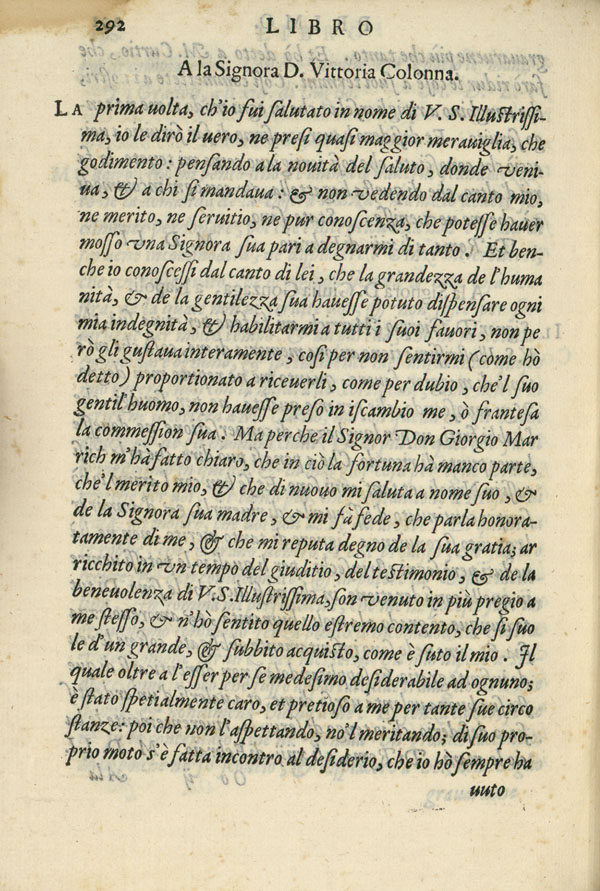 292 LIBRO
A la Signora D. Vittoria Colonna.
LA prima uolta, ch'io fui salutato in nome di V. S. Illustrissi-
ma, io le dirò il uero, ne presi quasi maggior merauiglia, che
godimento: pensando a la nouità del saluto, donde veni-
ua, & a chi si mandaua: & non vedendo dal canto mio,
ne merito, ne seruitio, ne pur conoscenza, che potesse hauer
mosso vna Signora sua pari a degnarmi di tanto. Et ben-
che io conoscessi dal canto di lei, che la grandezza de l'huma
nità, & de la gentilezza sua hauesse potuto dispensare ogni
mia indegnità, & habilitarmi a tutti i suoi fauori, non pe
rò gli gustaua interamente, cosi per non sentirmi (come hò
detto) proportionato a riceuerli, come per dubio, che'l suo
gentil'huomo, non hauesse preso in iscambio me, ò frantesa
la commession sua. Ma perche il Signor Don Giorgio Mar
rich m'hà fatto chiaro, che in ciò la fortuna hà manco parte,
che'l merito mio, & che di nuouo mi saluta a nome suo, &
de la Signora sua madre, & mi fà fede, che parla honora-
tamente di me, & che mi reputa degno de la sua gratia; ar
ricchito in vn tempo del giuditio, del testimonio, & de la
beneuolenza di V.S.Illustrissima, son venuto in più pregio a
me stesso, & n'hò sentito quello estremo contento, che si suo
le d'un grande, & subbito acquisto, come è suto il mio. Il
quale oltre a l'esser per se medesimo desiderabile ad ognuno;
è stato spetialmente caro, et pretioso a me per tante sue circo
stanze: poi che non l'aspettando, no'l meritando; di suo pro-
prio moto s'è fatta incontro al desiderio, che io hò sempre ha
uuto